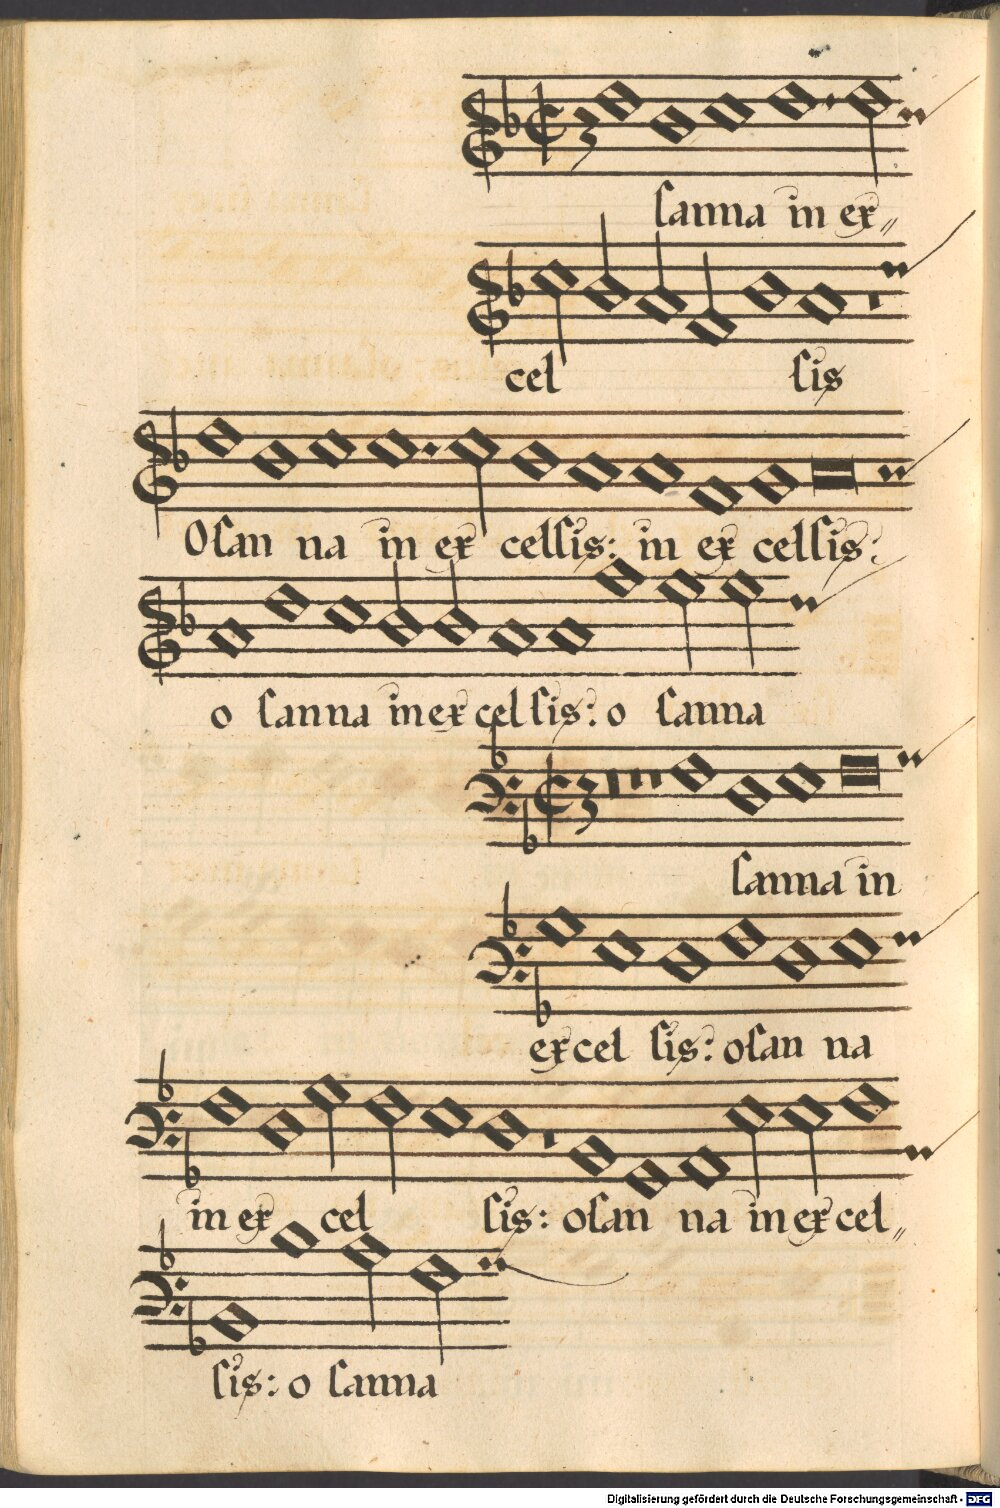 sanna in ex〃
cel sis
Osan na in ex celsis: in ex celsis:
o sanna in ex cel sis: o sanna
sanna in
ex cel sis: osan na
in ex cel sis: osan na in ex cel〃
sis: o sanna
Digitalisierung gefördert durch die Deutsche Forschungsgemeinschaft - DFG